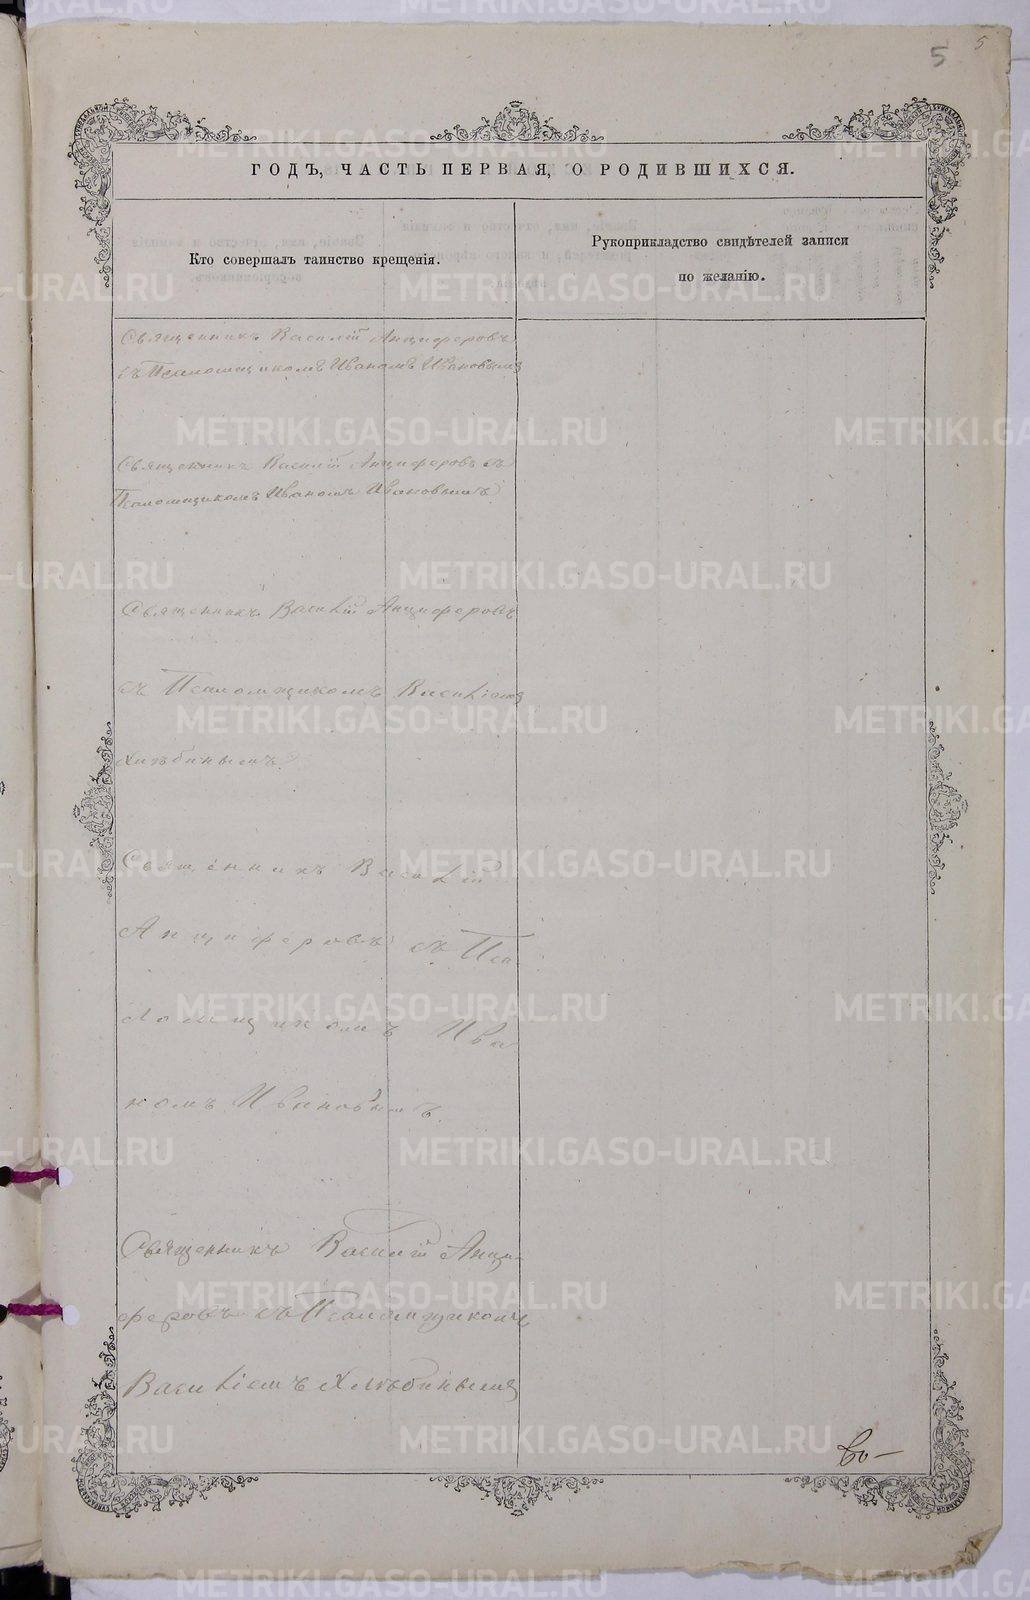 5 5
ГОДЪ, ЧАСТЬ ПЕРВАЯ, О РОДИВШИХСЯ.
Кто совершалъ таинство крещенія.
Рукоприкладство свидѣтелей записи
по желанію.
Священникъ Василій Анциферовъ
съ Псаломщикомъ Иваномъ Ивановымъ
Священникъ Василій Анциферовъ съ
Псаломщикомъ Иваномъ Ивановымъ
Священникъ Василій Анциферовъ
съ Псаломщикомъ Василіемъ
Хлѣбинымъ
Священникъ Василій
Анциферовъ съ Пса
ломщикомъ Ива
номъ Ивановымъ
Священникъ Василій Анци-
феровъ съ Псаломщикомъ
Василіемъ Хлѣбинымъ
во-
METRIKI.GASO-URAL.RU